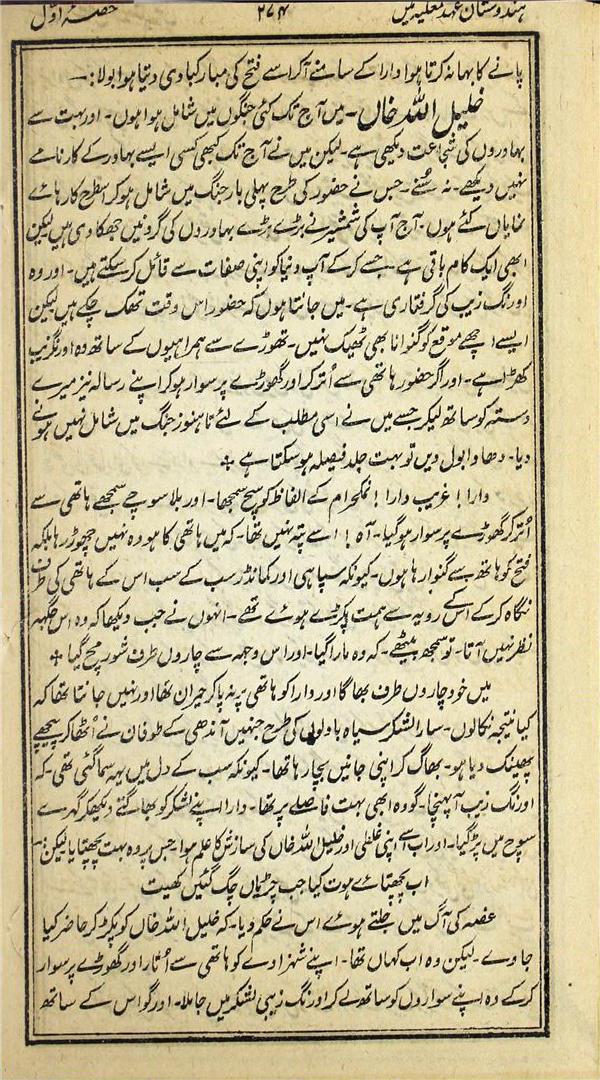 ہندوستان عہد مغلیہ میں ۲۷۴ حصہ اوّل
پانے کا بہانہ کرتا ہوا دارا کے سامنے آکر اسے فتح کی مبارکبادی دیتا ہوا بولا:۔
خلیل اللہ خاں۔ میں آج تک کئی جنگوں میں شامل ہوا ہوں۔ اور بہت سے
بہادروں کی شجاعت دیکھی ہے۔ لیکن میں نے آج تک کبھی کسی ایسے بہادر کے کارنامے
نہیں دیکھے۔ نہ سُنے۔ جس نے حضور کی طرح پہلی بار جنگ میں شامل ہوکر اسطرح کارہائے
نمایاں کئے ہوں۔ آج آپ کی شمشیر نے بڑے بڑے بہادروں کی گردنیں جھکا دی ہیں لیکن
ابھی ایک کام باقی ہے۔ جسے کرکے آپ دنیا کو اپنی صفات سے قائل کر سکتے ہیں۔ اور وہ
اورنگ زیب کی گرفتاری ہے۔ میں جانتا ہوں کہ حضور اس وقت تھک چکے ہیں لیکن
ایسے اچھے موقع کو گنوانا بھی ٹھیک نہیں۔ تھوڑے سے ہمراہیوں کے ساتھ وہ اورنگزیب
کھڑا ہے۔ اور اگر حضور ہاتھی سے اُتر کر اور گھوڑے پر سوار ہوکر اپنے رسالہ نیز میرے
دستہ کو ساتھ لیکر جسے میں نے اسی مطلب کے لئے تا ہنوز جنگ میں شامل نہیں ہونے
دیا۔ دھاوا بول دیں تو بہت جلد فیصلہ ہو سکتا ہے +
دارا! غریب دارا! نمکحرام کے الفاظ کو سچ سمجھا۔ اور بلا سوچے سمجھے ہاتھی سے
اُتر کر گھوڑے پر سوار ہو گیا۔ آہ! اسے پتہ نہیں تھا۔ کہ میں ہاتھی کا ہودہ نہیں چھوڑ رہا بلکہ
فتح کو ہاتھ سے گنوا رہا ہوں۔ کیونکہ سپاہی اور کمانڈر سب کے سب اس کے ہاتھی کی طرف
نگاہ کرکے اُس کے رویہ سے ہمت پکڑے ہوئے تھے۔ انہوں نے جب دیکھا کہ وہ اس جگہ
نظر نہیں آتا۔ تو سمجھ بیٹھے۔ کہ وہ مارا گیا۔ اور اس وجہ سے چاروں طرف شور مچ گیا +
میں خود چاروں طرف بھاگا اور دارا کو ہاتھی پر نہ پا کر حیران تھا اور نہیں جانتا تھا کہ
کیا نتیجہ نکالوں۔ سارا لشکر سیاہ بادلوں کی طرح جنہیں آندھی کے طوفان نے اُٹھا کر پیچھے
پھینک دیا ہو۔ بھاگ کر اپنی جانیں بچا رہا تھا۔ کیونکہ سب کے دل میں یہ سما گئی تھی۔ کہ
اورنگ زیب آ پہنچا۔ گو وہ ابھی بہت فاصلے پر تھا۔ دارا اپنے لشکر کو بھاگتے دیکھکر گہرے
سوچ میں پڑ گیا۔ اور اب اسے اپنی غلطی اور خلیل اللہ خاں کی سازش کا علم ہوا۔ جس پر وہ بہت پچھتایا لیکن:۔
اب پچھتائے ہوت کیا جب چڑیاں چگ گئیں کھیت
غصہ کی آگ میں جلتے ہوئے اس نے حکم دیا۔ کہ خلیل اللہ خاں کو پکڑ کر حاضر کیا
جاوے۔ لیکن وہ اب کہاں تھا۔ اپنے شہزادے کو ہاتھی سے اُتار اور گھوڑے پر سوار
کرکے وہ اپنے سواروں کو ساتھ لے کر اورنگ زیبی لشکر میں جا ملا۔ اور گو اس کے ساتھ